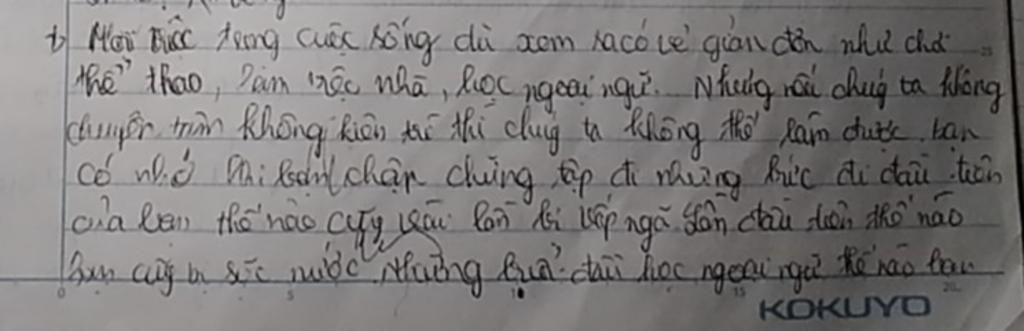 Mọi việc trong cuộc sống dù xem ra có vẻ giản đơn như chơi
thể thao, làm việc nhà, học ngoại ngữ. Nhưng nếu chúng ta không
chuyên tâm không kiên trì thì chúng ta không thể làm được. bạn
có nhớ khi chập chững tập đi những bước đi đầu tiên
của bạn thế nào cũng vài lần bị vấp ngã lần đầu tiên thế nào
bạn cũng bị sặc nước Những buổi đầu học ngoại ngữ thế nào bạn
0 5 10 15 20
KOKUYO